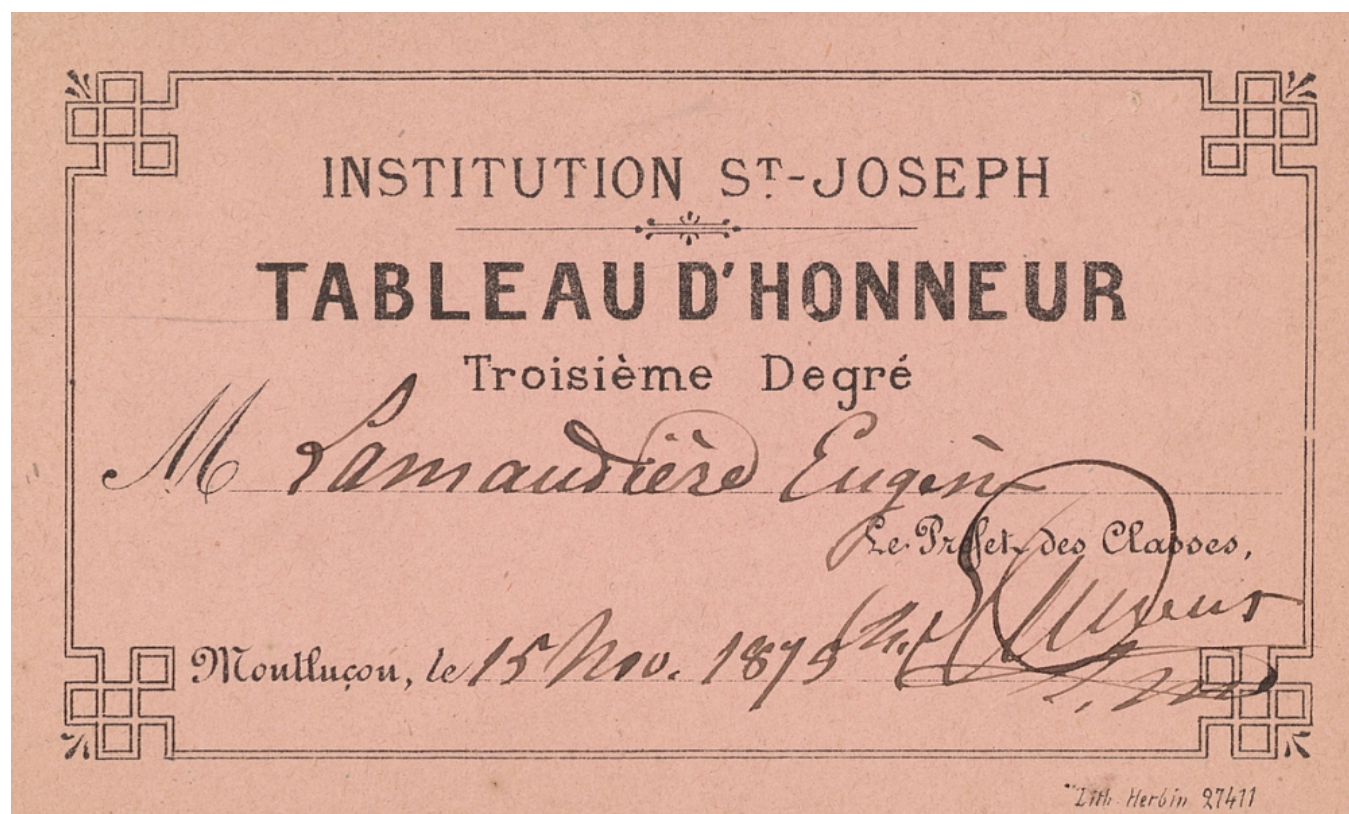 INSTITUTION ST-JOSEPH
TABLEAU D'HONNEUR
Troisième Degré
M Lamaudière Eugène
Le Préfet des Classes,
Montluçon, le 15 Nov. 1875
Lith. Herbin 27411